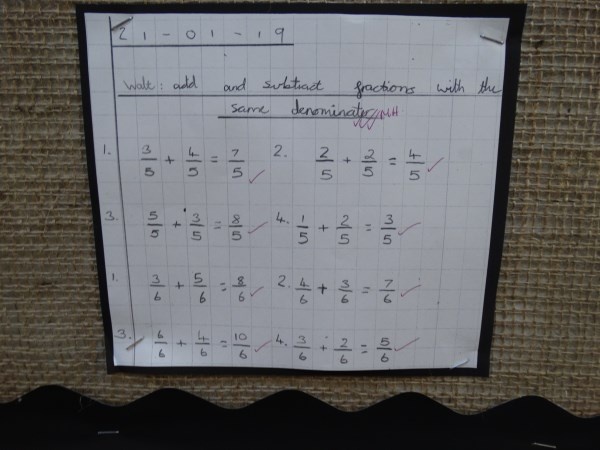 21-01-19
Walt: add and subtract fractions with the
same denominator MH
1. 3/5 + 4/5 = 7/5 2. 2/5 + 2/5 = 4/5
3. 5/5 + 3/5 = 8/5 4. 1/5 + 2/5 = 3/5
1. 3/6 + 5/6 = 8/6 2. 4/6 + 3/6 = 7/6
3. 6/6 + 4/6 = 10/6 4. 3/6 + 2/6 = 5/6